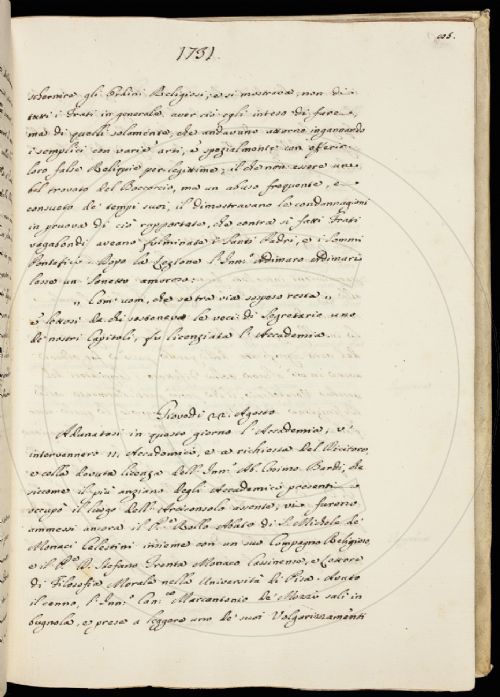 105.
1731.
schernire gli Ordini Religiosi; e si mostrava, non di
tutti i Frati in generale aver ciò egli inteso di fare,
ma di quelli solamente, che andavano attorno ingannando
i semplici con varie arti, e spezialmente con offerir
loro false Reliquie per legittime; il che non essere una
del trovato del Boccaccio, ma un abuso frequente, e
consueto de' tempi suoi, il dimostravano le condannagioni
in pruova di ciò rapportate, che contra si fatti Frati
vagabondi aveano fulminate i Santi Padri, e i Sommi
Pontefici. Dopo la Lezione l'Inn.° Adimaro Adimari
lesse un Sonetto amoroso;
" Com' uom, che sa tra via sospeso resta "
e lettosi da chi sosteneva le veci di Segretario uno
de' nostri Capitoli, fu licenziata l'Accademia.
Giovedì 22. Agosto
Adunatasi in questo giorno l'Accademia, v'
intervennero 11. Accademici, e a richiesta del Provved.
e colla dovuta licenza dell'Inn.° Ab. Cosimo Bardi, che
siccome il più anziano degli Accademici presenti
occupò il luogo dell'Arciconsolo assente, vi furono
ammessi ancora il P. Bollo Abate di S. Michele de'
Monaci Celestini insieme con un suo Compagno Religioso,
e il P. D. Stefano Trenta Monaco Cassinense, e Lettore
di Filosofia Morale nella Università di Pisa. Dato
il cenno, l'Inn.° Can.co Marcantonio de' Mozzi salì in
bugnola, e prese a leggere uno de' suoi Volgarizzamenti